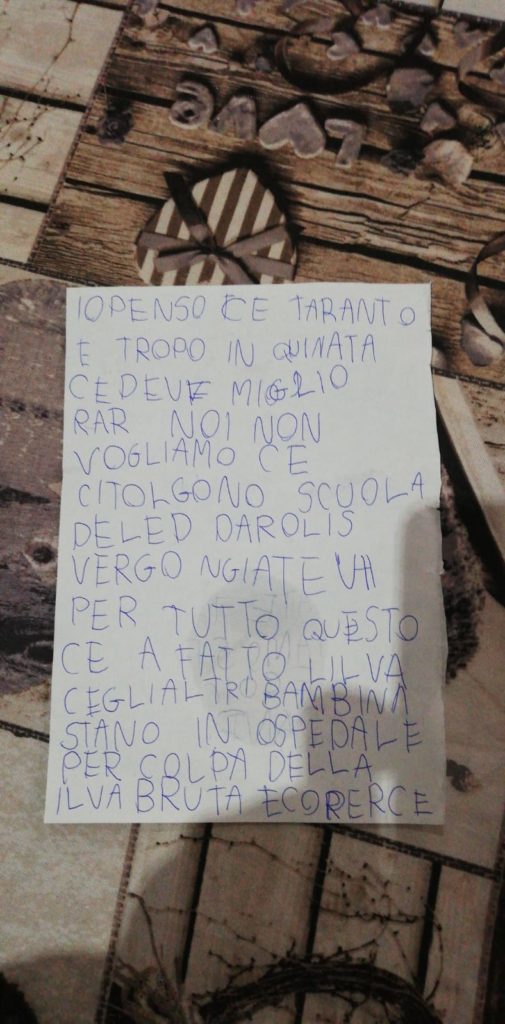 IOPENSO CE TARANTO
E TROPO IN QUINATA
CEDEVE MIGLIO
RAR NOI NON
VOGLIAMO CE
CITOLGONO SCUOLA
DELED DAROLIS
VERGO NGIATEVI
PER TUTTO QUESTO
CE A FATTO LILVA
CEGLIALTRI BAMBINI
STANO IN OSPEDALE
PER COLPA DELLA
ILVA BRUTA